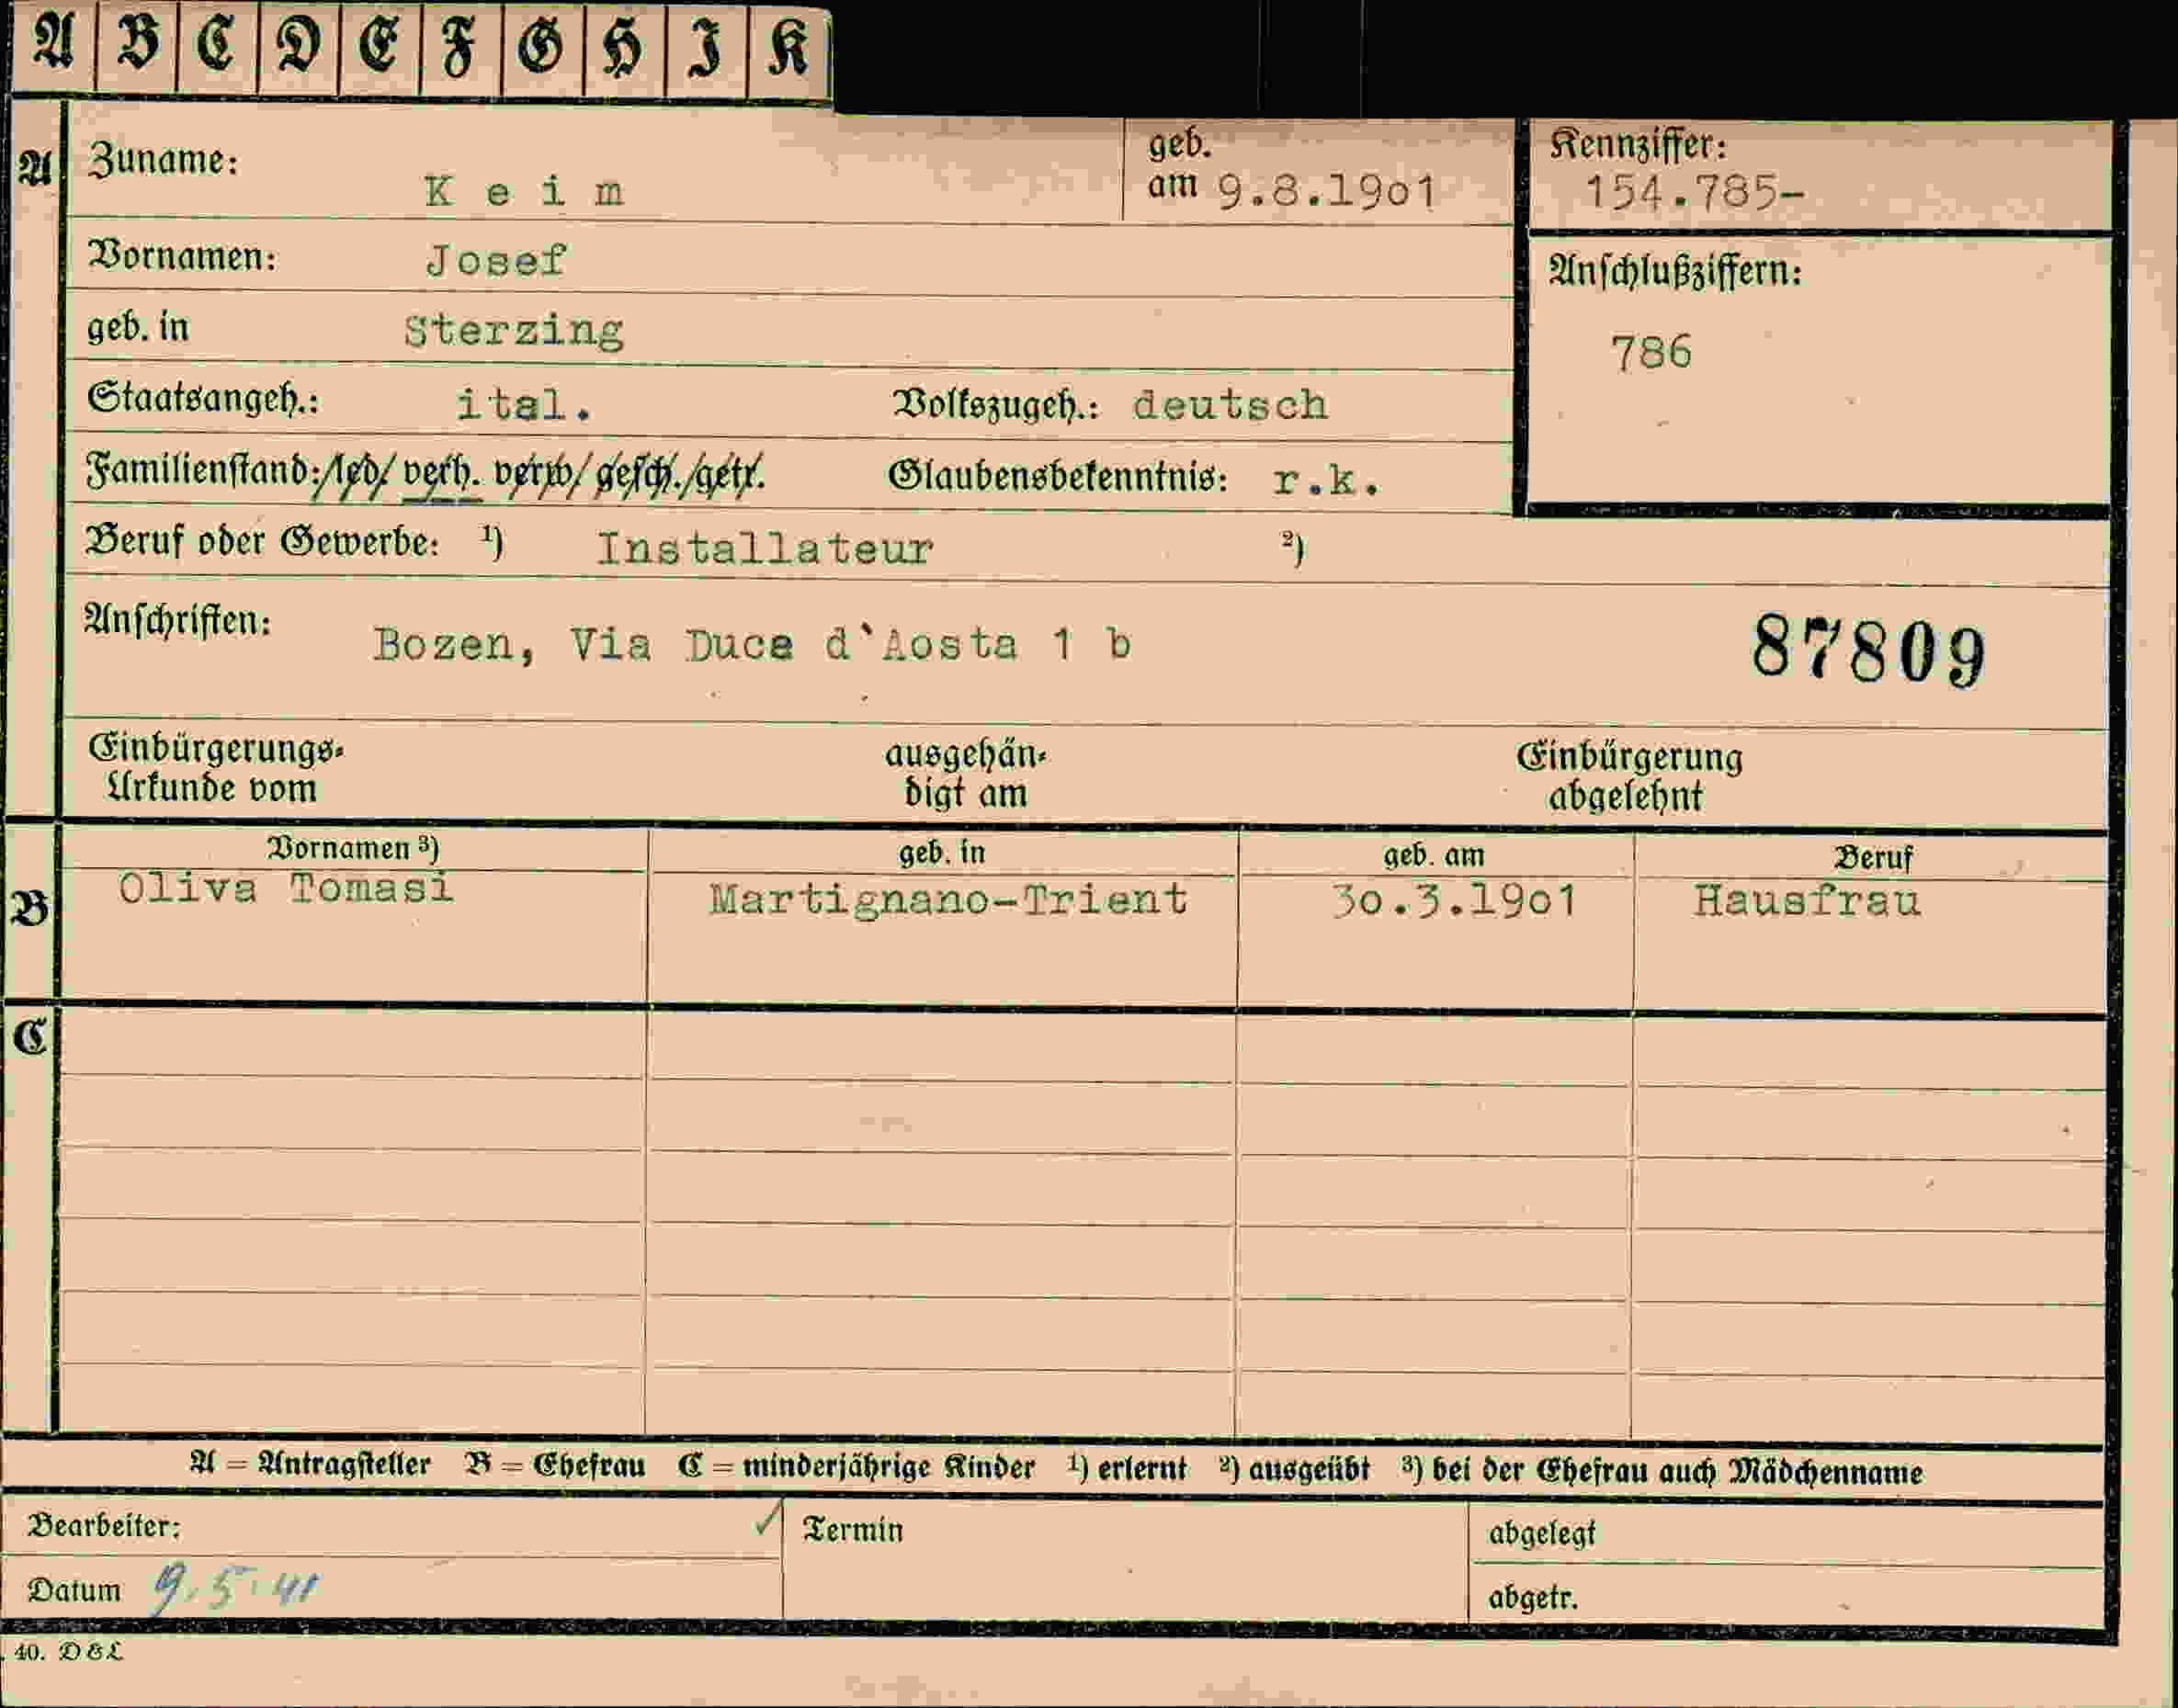 A B C D E F G H I K
A Zuname: Keim geb. am 9.8.1901 Kennziffer: 154.785-
Vornamen: Josef Anschlußziffern:
geb. in Sterzing 786
Staatsangeh.: ital. Volkszugeh.: deutsch
Familienstand: / led / verh. verw / gesch. / getr. Glaubensbekenntnis: r.k.
Beruf oder Gewerbe: ¹) Installateur ²)
Anschriften: Bozen, Via Duca d`Aosta 1 b 87809
Einbürgerungs- ausgehän- Einbürgerung
Urkunde vom digt am abgelehnt
Vornamen ³) geb. in geb. am Beruf
B Oliva Tomasi Martignano-Trient 30.3.1901 Hausfrau
C
A = Antragsteller B = Ehefrau C = minderjährige Kinder ¹) erlernt ²) ausgeübt ³) bei der Ehefrau auch Mädchenname
Bearbeiter: ✓ Termin abgelegt
Datum 9.5.41 abgetr.
40. D&L